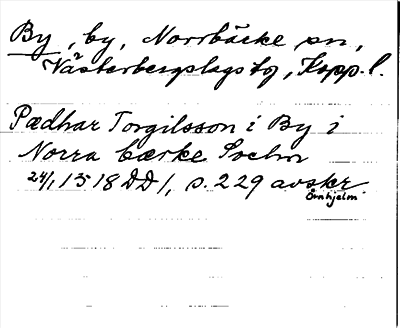 By, by, Norrbärke sn,
Västerbergslags tg, Kopp. l.
Pædhar Torgilsson i By i
Norra bærke Sochn
24/1 1518 DD 1, s. 229 avskr.
Örnhjelm